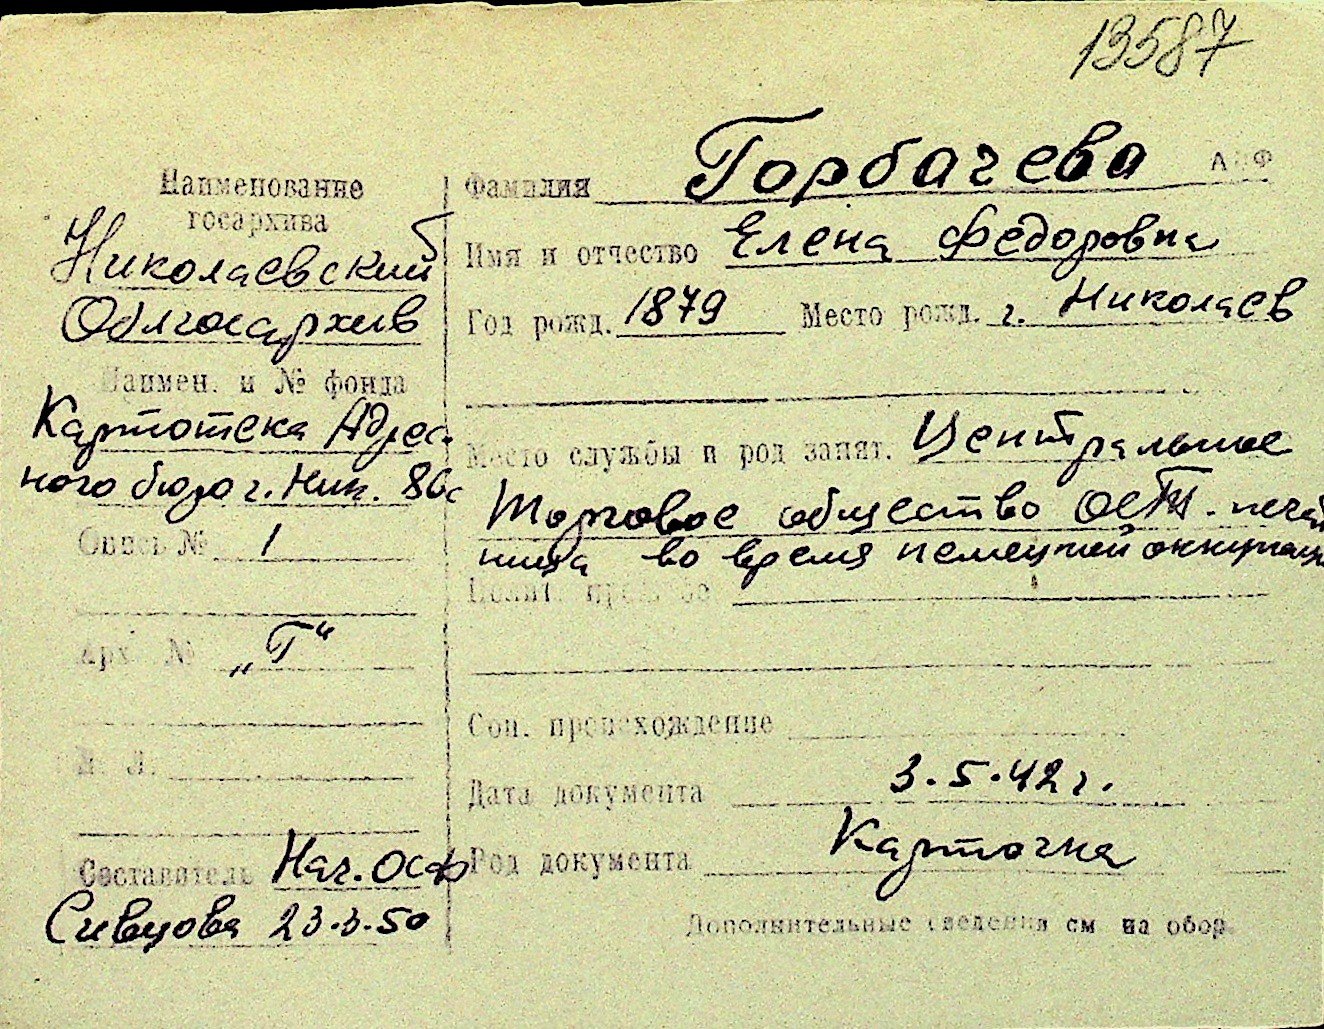 13587
Наименование
госархива
Николаевский
Облгосархив
Наимен. и № фонда
Картотека Адрес-
ного бюро г. Ник.
Опись № 1
Арх. № „Г“
Л. Л.
Составитель Нач. ОСФ
Сивцова 23.3.50
Фамилия Горбачева
Имя и отчество Елена Федоровна
Год рожд. 1879 Место рожд. г. Николаев
Место службы и род занят. Центральное
Торговое общество ОСТ.
ница во время немецкой оккупации
Соц. происхождение
Дата документа 3.5.42 г.
Род документа Карточка
Дополнительные сведения см на обор.